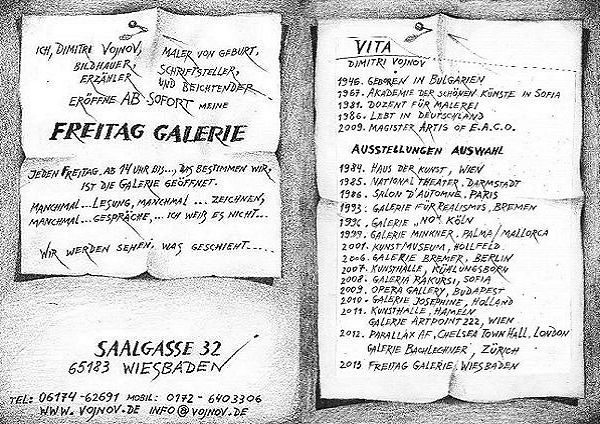 ICH, DIMITRI VOJNOV, MALER VON GEBURT,
BILDHAUER, SCHRIFTSTELLER,
ERZÄHLER UND BEICHTENDER
ERÖFFNE AB SOFORT MEINE
FREITAG GALERIE
JEDEN FREITAG. AB 14 UHR BIS..., DAS BESTIMMEN WIR,
IST DIE GALERIE GEÖFFNET.
MANCHMAL...LESUNG, MANCHMAL ... ZEICHNEN,
MANCHMAL...GESPRÄCHE, ... ICH WEIß ES NICHT...
WIR WERDEN SEHEN, WAS GESCHIEHT.....
SAALGASSE 32
65183 WIESBADEN
TEL: 06174-62691 MOBIL: 0172-6403306
WWW.VOJNOV.DE INFO@VOJNOV.DE
VITA
DIMITRI VOJNOV
1946. GEBOREN IN BULGARIEN
1967. AKADEMIE DER SCHÖNEN KÜNSTE IN SOFIA
1981. DOZENT FÜR MALEREI
1986. LEBT IN DEUTSCHLAND
2009. MAGISTER ARTIS OF E.A.C.O.
AUSSTELLUNGEN AUSWAHL
1984. HAUS DER KUNST, WIEN
1985. NATIONAL THEATER, DARMSTADT
1986. SALON D'AUTOMNE, PARIS
1993. GALERIE FÜR REALISMUS, BREMEN
1996. GALERIE „NO" KÖLN
1999. GALERIE MINKNER. PALMA/MALLORCA
2001. KUNST/MUSEUM, HOLLFELD
2006. GALERIE BREMER, BERLIN
2007. KUNSTHALLE, KÜHLUNGSBORN
2008. GALERIA RAKURSI, SOFIA
2009. OPERA GALLERY, BUDAPEST
2010. GALERIE JOSEPHINE, HOLLAND
2011. KUNSTHALLE, HAMELN
GALERIE ARTPOINT 222, WIEN
2012. PARALLAX AF, CHELSEA TOWN HALL, LONDON
GALERIE BACHLECHNER, ZÜRICH
2013 FREITAG GALERIE, WIESBADEN